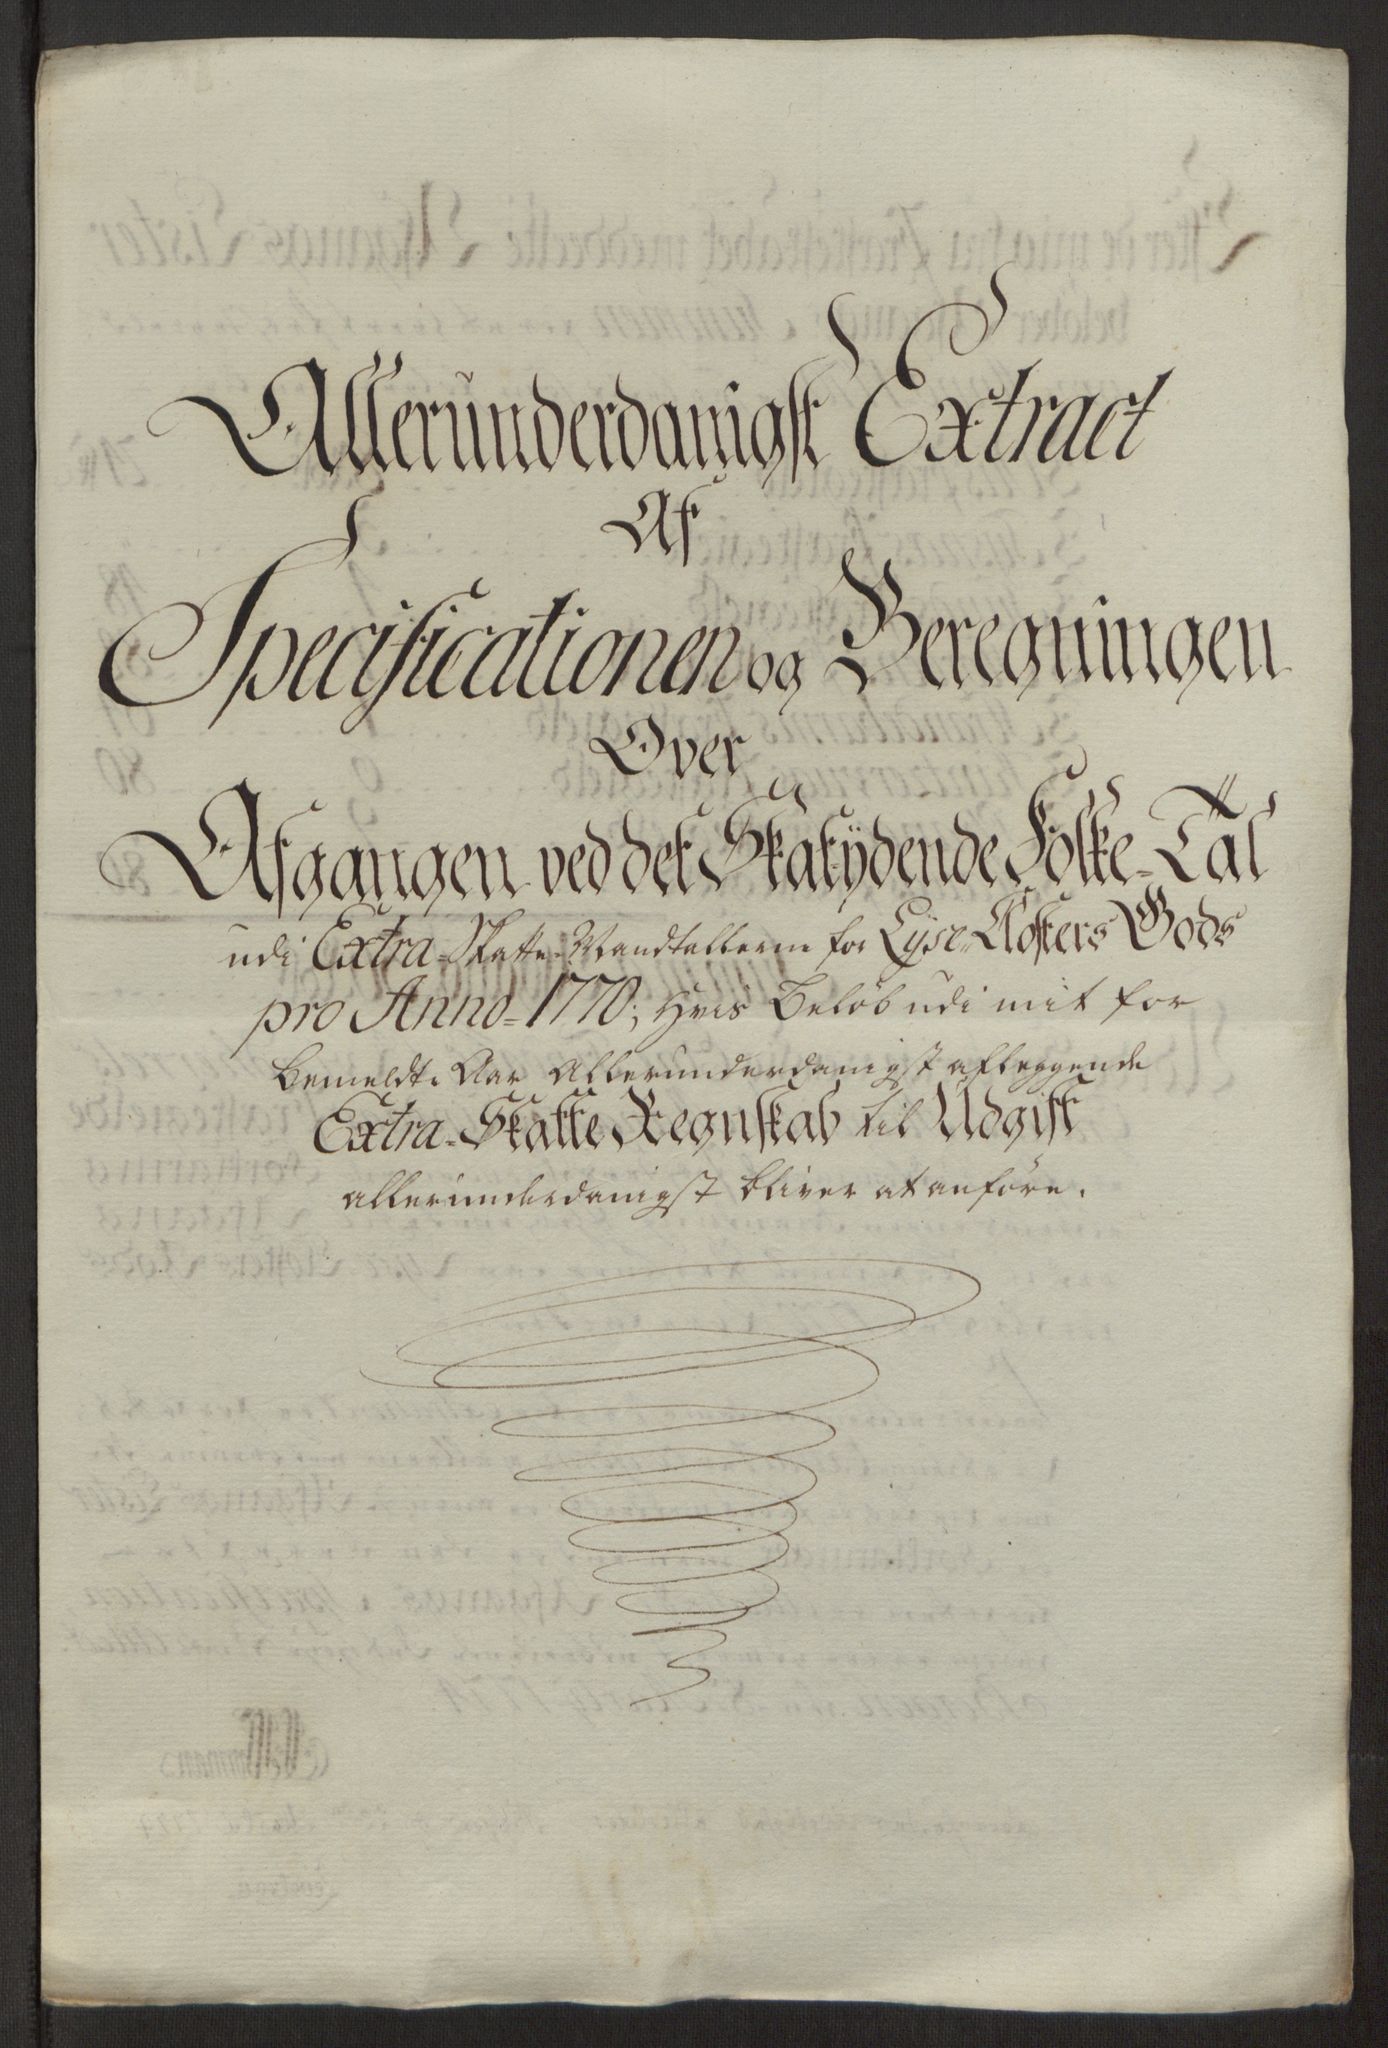 Allerunderdanigst Extract
Af
Specificationen og Beregningen
Over
Afgangen ved det Skatÿdende Folke-Tal
udi Extra-Skatte-Mandtallerne for Lÿse-Klosters Gods
pro Anno-1770, hvis Beløb udi mit for
bemeldte Aar allerunderdanigst aflæggende
Extra-Skatte Regnskab til Udgift
allerunderdanigst bliver at anføre.